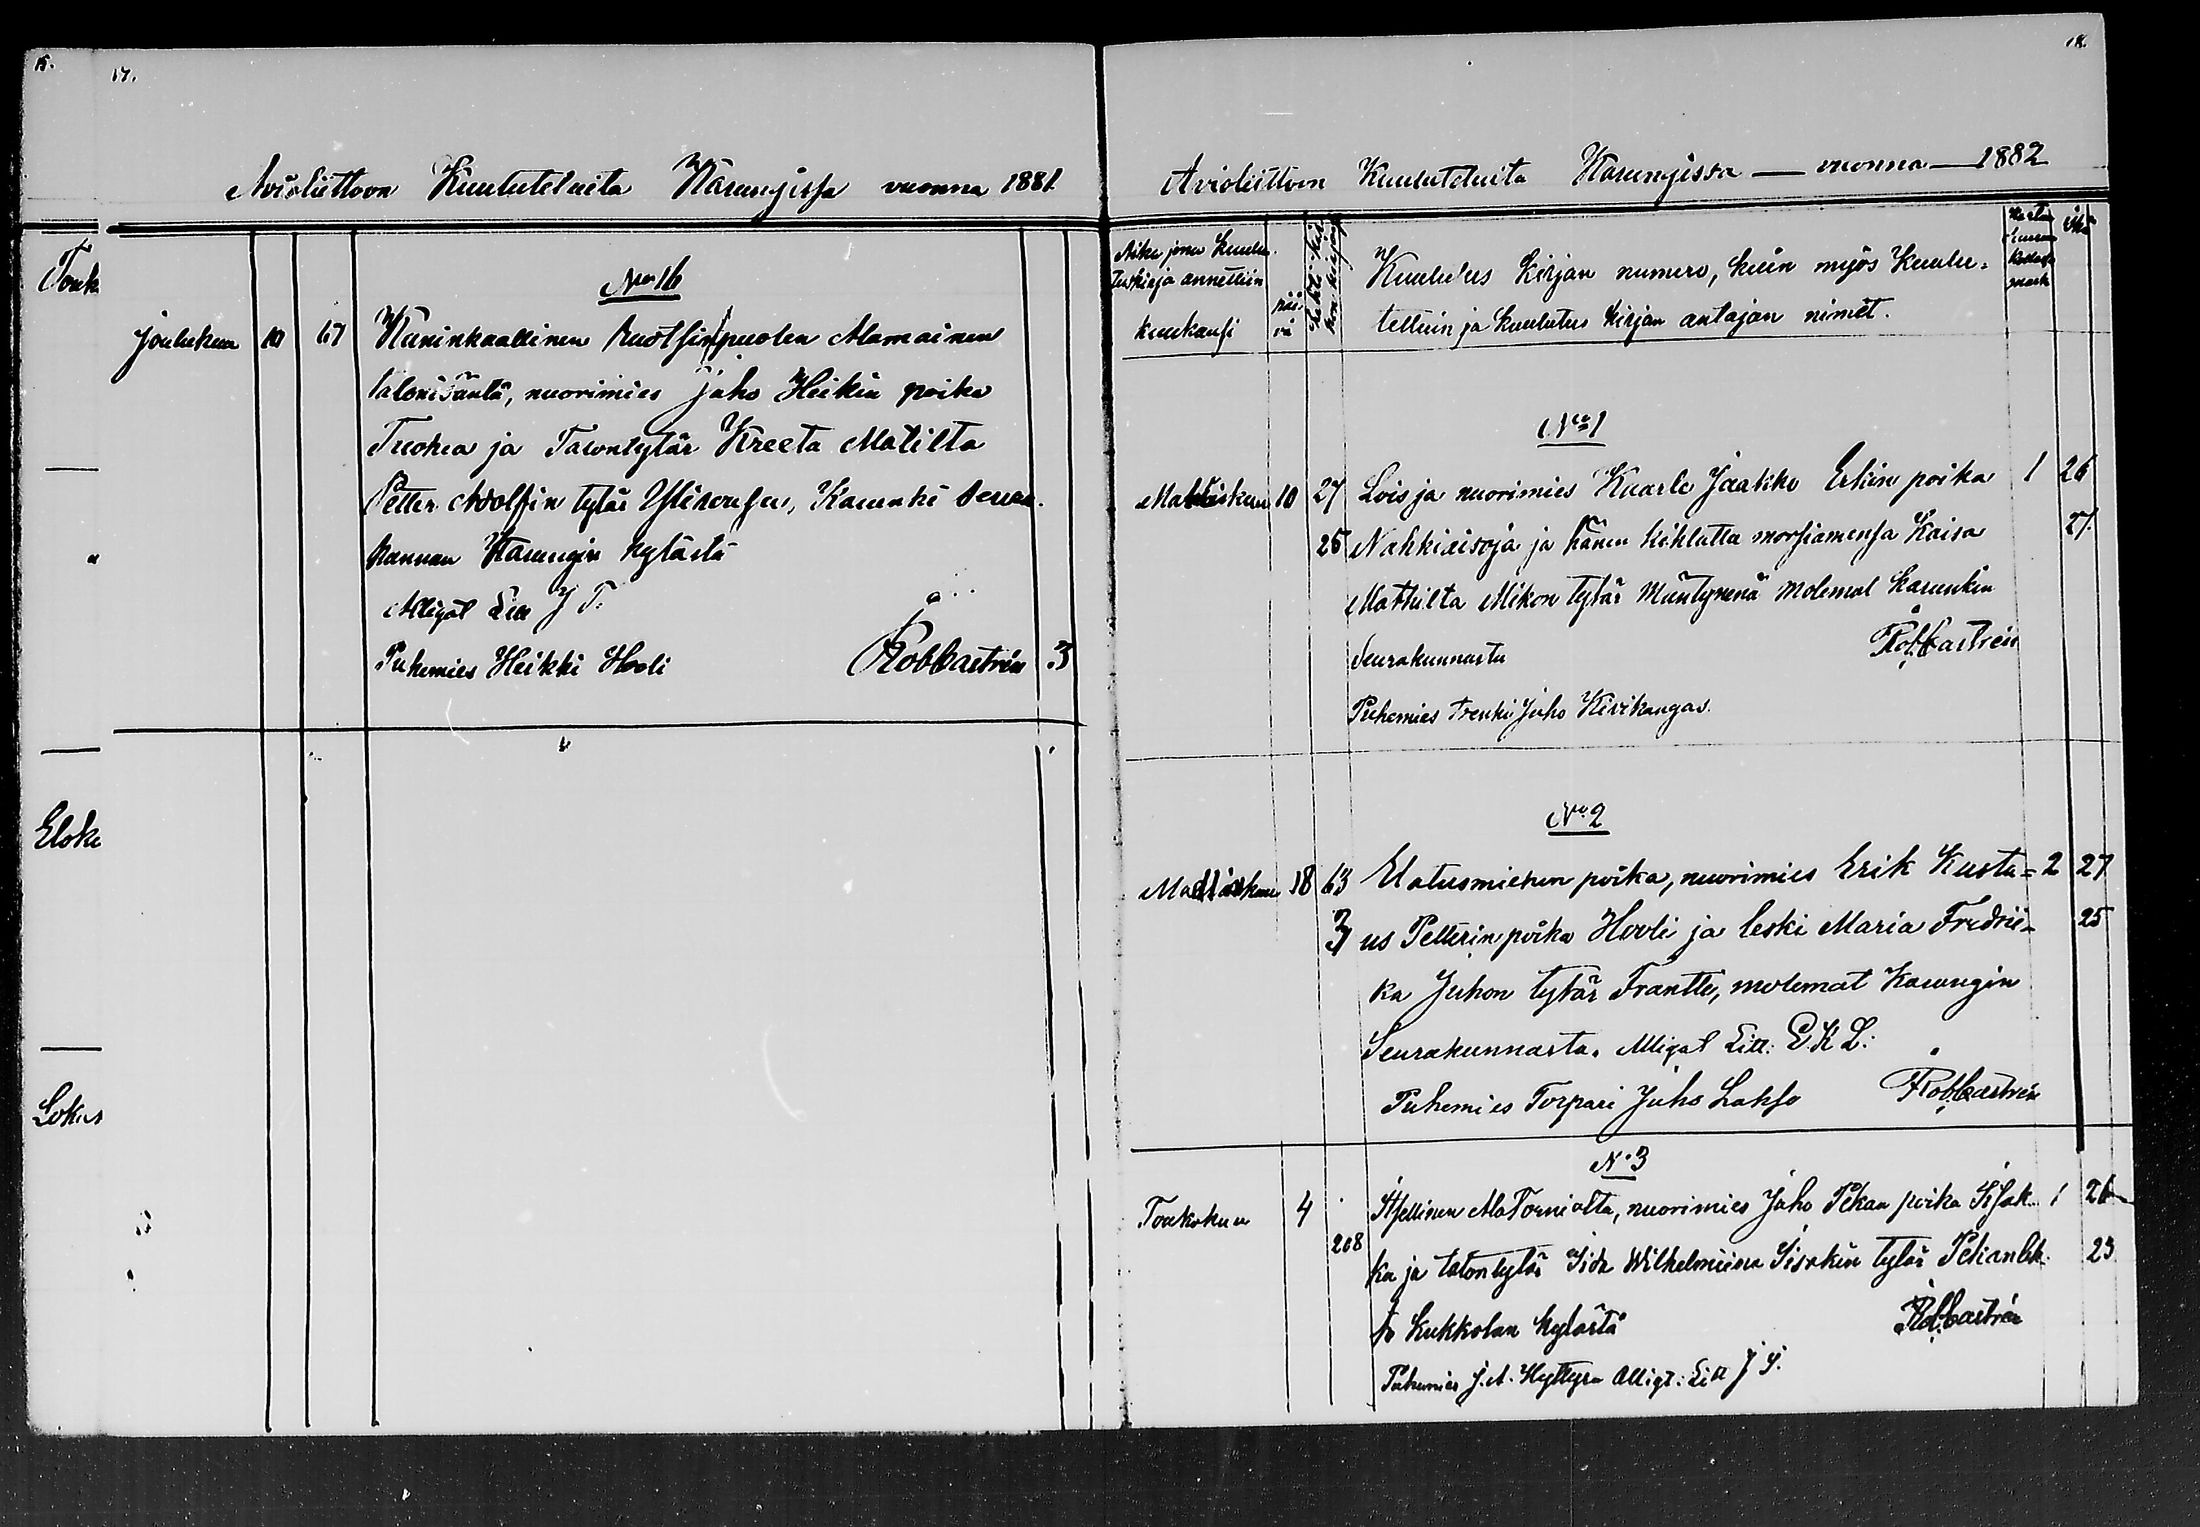 15.
17.
Avioliittoon Kuulutetuita Karungissa vuonna 1881
Touk
No 16
Joulukuu 10 67 Kuninkaallinen Ruotsin puolen Alamainen
talonisäntä, nuorimies Juho Heikin poika
Tuohea ja Talontytär Kreeta Matilta
Petter Adolfin tytär
Rannan Karungin kylästä
Alligat Litt J T.
Puhemies Heikki Hooli Rob Castrén 3
Eloku
Lokus
18.
Avioliittoon Kuulutetuita Karungissa — vuonna — 1882
Aika jona kuulu-
tuskirja annettiin
kuukausi päi-
vä
Kuulutus kirjan numero, kuin myös Kuulu-
tettuin ja kuulutus kirjan antajan nimet.
Ikä
No 1
Maaliskuu 10 27 Loisja nuorimies Kaarle Jaakko Erkin poika 1 26
25 Nahkiaisoja ja hänen kihlattu morsiamensa Kaisa 27.
Mathilta Mikon tytär Mäntynenä Molemat Karunkin
Seurakunnasta Rob. Castrén
Puhemies Trenki Juho Kivikangas.
No 2
Maaliskuu 18 63 Elatusmiehen poika, nuorimies Erik Kusta= 2 27
37 us Petterin poika Hooli ja leski Maria Fredrii- 25
ka Juhon tytär Frantti, molemat Karungin
Seurakunnasta. Alligat Litt: E. K L:
Puhemies Torpari Juho Lakso Rob. Castrén
No 3
Toukokuu 4 Itsellinen AlaTorniolta, nuorimies Juho Pekan poika Iisak 1 26
208 ka ja talontytär Iida Wilhelmiina Iisakin tytär 23
Kukkolan kylästä Rob. Castrén
Puhemies J. A. Hyttysn Alligt: Litt J I.